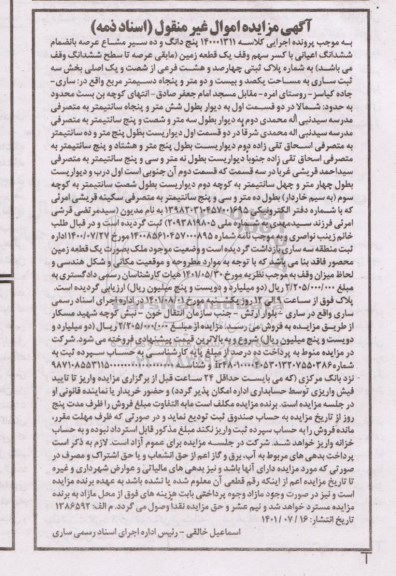 آگهی مزایده اموال غیر منقول (اسناد ذمه)
به موجب پرونده اجرایی کلاسه ۱۴۰۰۰۱۳۱۱ پنج دانگ و ده سیر مشاع عرصه بانضمام
ششدانگ اعیانی با کسر سهم وقف یک قطعه زمین (مابقی عرصه تا سطح ششدانگ وقف
می باشد) به شماره پلاک ثبتی چهارصد و هشت فرعی از شصت و یک اصلی بخش سه
ثبت ساری به مساحت یکصد و بیست و دو متر و پنجاه دسیمتر مربع واقع در: ساری-
جاده کیاسر- روستای امره- مقابل مسجد امام جعفر صادق - انتهای کوچه بن بست محدود
به حدود: شمالا در دو قسمت اول به دیوار بطول شش متر و پنجاه سانتیمتر به متصرفی
مدرسه سیدنبی اله محمدی دوم به دیوار بطول سه متر و شصت و پنج سانتیمتر به متصرفی
مدرسه سیدنبی اله محمدی شرقا در دو قسمت اول دیواریست بطول پنج متر و ده سانتیمتر
به متصرفی اسحاق تقی زاده دوم دیواریست بطول پنج متر و هشتاد و پنج سانتیمتر به
متصرفی اسحاق تقی زاده جنوبا دیواریست بطول نه متر و سی و پنج سانتیمتر به متصرفی
سیداحمد قریشی غربا در سه قسمت که قسمت دوم آن جنوبی است اول درب و دیواریست
بطول چهار متر و چهل سانتیمتر به کوچه دوم دیواریست بطول شصت سانتیمتر به کوچه
سوم (به سیم خاردار) بطول ده متر و سی و پنج سانتیمتر به متصرفی سکینه قریشی امرئی
که با شماره دفتر الکترونیکی به نام مدیون (سیدمرتضی قرشی
امرئی فرزند سیدمهدی به شماره ملی ۲۰۹۳۸۱۹۸۰۵) ثبت گردیده است و در قبال طلب
خانم زینب نواصری و به موجب نامه شماره مورخ ۱۴۰۰/۰۷/۲۷ اداره
ثبت منطقه سه ساری بازداشت گردیده است و وضعیت موجود ملک بصورت یک قطعه زمین
محصور فاقد بنا می باشد که با توجه به موارد مطروحه و موقعیت مکانی و شکل هندسی و
لحاظ میزان وقف به موجب نظریه مورخ ۱۴۰۱/۰۵/۳۰ هیات کارشناسان رسمی دادگستری به
مبلغ ۲/۲۰۵/۰۰۰/۰۰۰ ریال (دو میلیارد و دویست و پنج میلیون ریال) ارزیابی گردیده است.
پلاک فوق از ساعت ۹ الی ۱۲ روز یکشنبه مورخ ۱۴۰۱/۰۸/۰۱ در اداره اجرای اسناد رسمی
ساری واقع در ساری - بلوار ارتش - جنب سازمان انتقال خون - نبش کوچه شهید مسکار
از طریق مزایده به فروش می رسد. مزایده از مبلغ ۲/۲۰۵/۰۰۰/۰۰۰ ریال (دو میلیارد و
دویست و پنج میلیون ریال) شروع و به بالاترین قیمت پیشنهادی فروخته می شود. شرکت
در مزایده منوط به پرداخت ده درصد از مبلغ پایه کارشناسی به حساب سپرده ثبت به
شماره و شناسه
نزد بانک مرکزی (که می بایست حداقل ۲۴ ساعت قبل از برگزاری مزایده واریز تا تایید
فیش واریزی توسط حسابداری اداره امکان پذیر گردد) و حضور خریدار یا نماینده قانونی او
در جلسه مزایده است. برنده مزایده مکلف است مابه التفاوت مبلغ فروش را ظرف مدت پنج
روز از تاریخ مزایده به حساب صندوق ثبت تودیع نماید و در صورتی که ظرف مهلت مقرر،
مانده فروش را به حساب سپرده ثبت واریز نکند مبلغ مذکور قابل استرداد نبوده و به حساب
خزانه واریز خواهد شد. شرکت در جلسه مزایده برای عموم آزاد است. لازم به ذکر است
پرداخت بدهی های مربوط به آب، برق و گاز اعم از حق انشعاب و یا حق اشتراک و مصرف در
صورتی که مورد مزایده دارای آنها باشد و نیز بدهی های مالیاتی و عوارض شهرداری و غیره
تا تاریخ مزایده اعم از اینکه رقم قطعی آن معلوم شده یا نشده باشد به عهده برنده مزایده
است و نیز در صورت وجود مازاد وجوه پرداختی بابت هزینه های فوق از محل مازاد به برنده
مزایده مسترد خواهد شد و نیم عشر و حق مزایده نقدا وصول می گردد. م الف: ۱۳۸۶۵۹۲
تاریخ انتشار: ۱۶ / ۰۷ / ۱۴۰۱
اسماعیل خالقی - رئیس اداره اجرای اسناد رسمی ساری